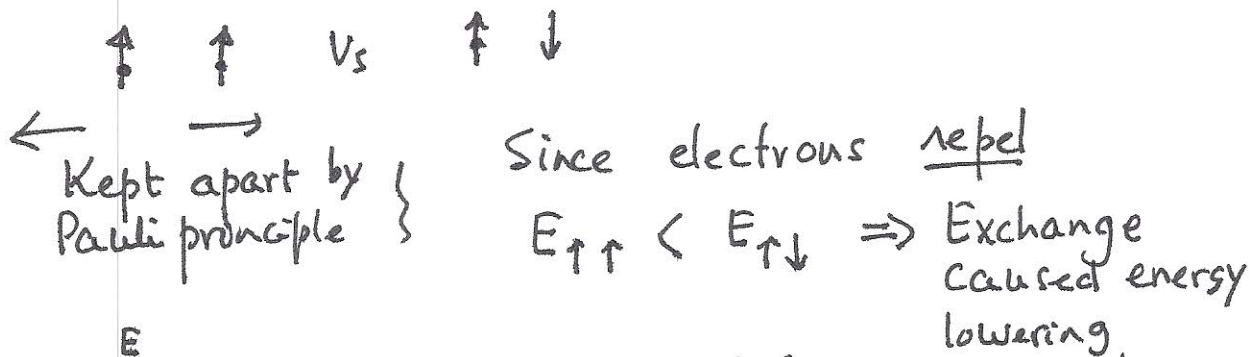 ↑ ↑ Vs ↑ ↓
← →
Kept apart by }
Pauli principle
Since electrons repel
E↑↑ < E↑↓ ⇒ Exchange
caused energy
lowering
E